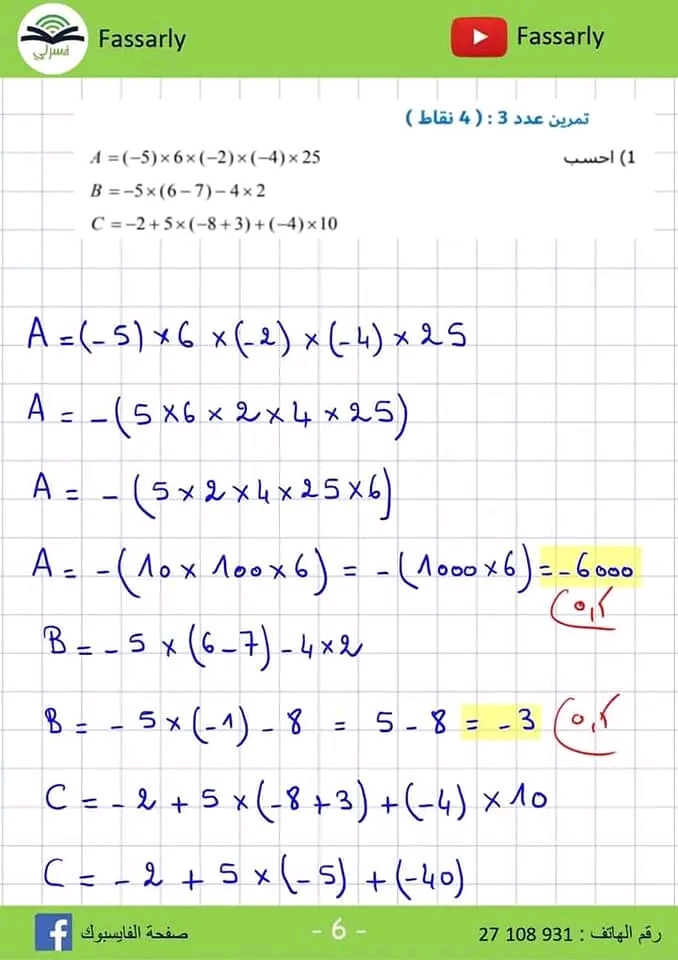 فسرلي
Fassarly
Fassarly
تمرين عدد 3 : ( 4 نقاط )
1) احسب
A = (−5) × 6 × (−2) × (−4) × 25
B = −5 × (6 − 7) − 4 × 2
C = −2 + 5 × (−8 + 3) + (−4) × 10
A = (-5) × 6 × (-2) × (-4) × 25
A = -(5 × 6 × 2 × 4 × 25)
A = -(5 × 2 × 4 × 25 × 6)
A = -(10 × 100 × 6) = -(1000 × 6) = -6000
B = -5 × (6 - 7) - 4 × 2
B = -5 × (-1) - 8 = 5 - 8 = -3
C = -2 + 5 × (-8 + 3) + (-4) × 10
C = -2 + 5 × (-5) + (-40)
صفحة الفايسبوك
- 6 -
رقم الهاتف : 27 108 931